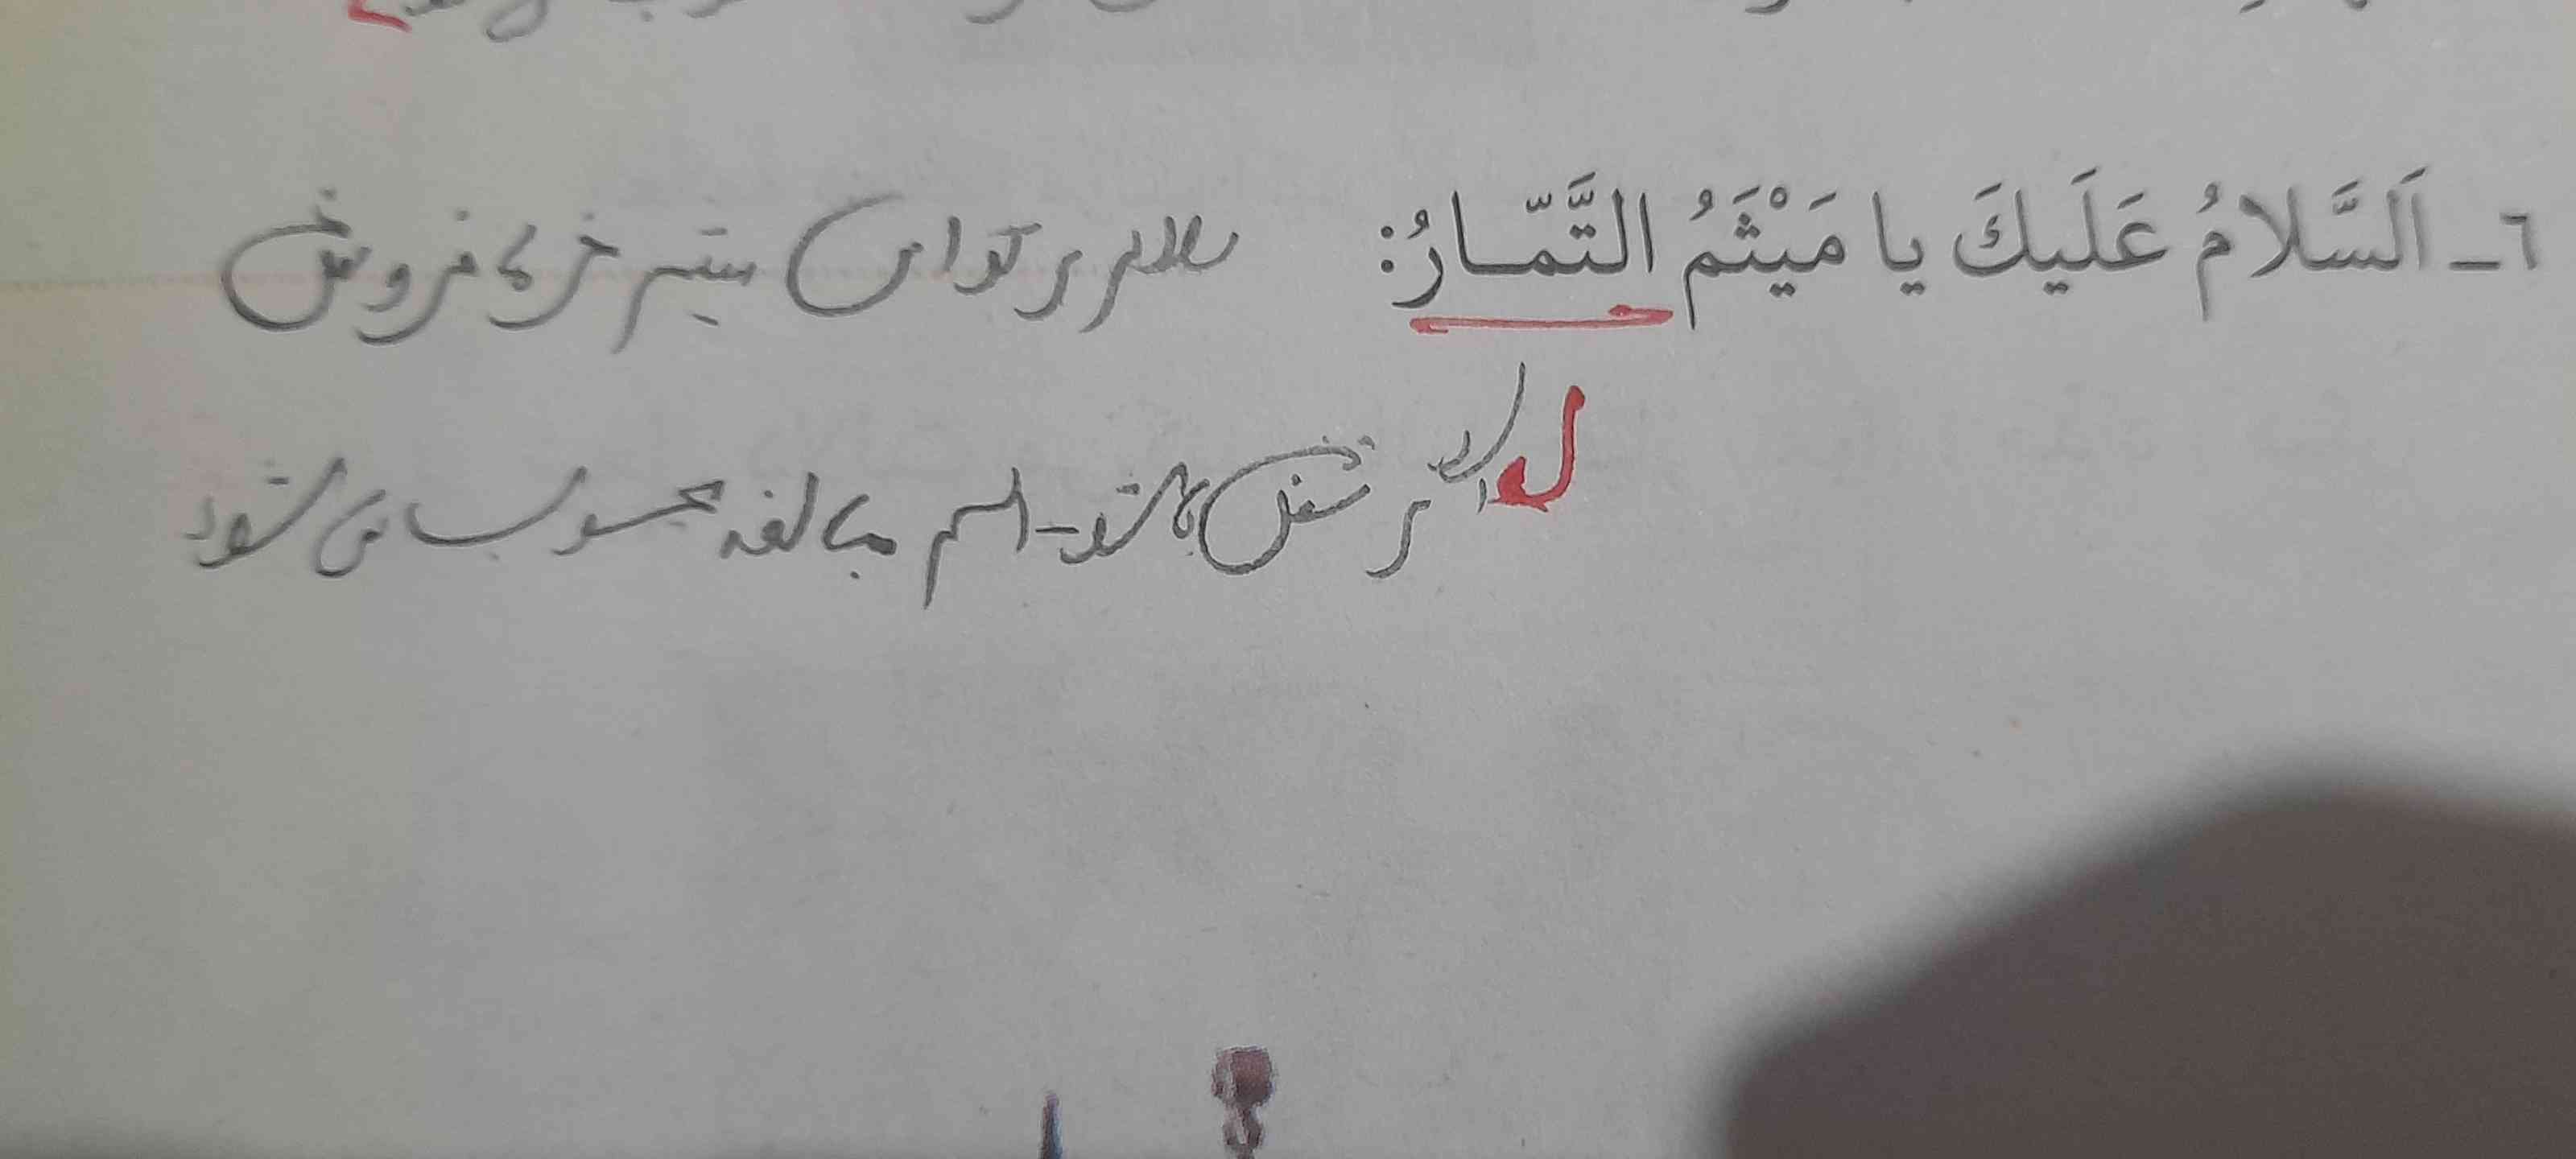 ٦ـ اَلسَّلامُ عَلَيكَ يا مَيْثَمُ التَّمّـارُ: سلام بر تو ای میثم خرما فروش
اگر شغل باشد - اسم مبالغه محسوب می شود